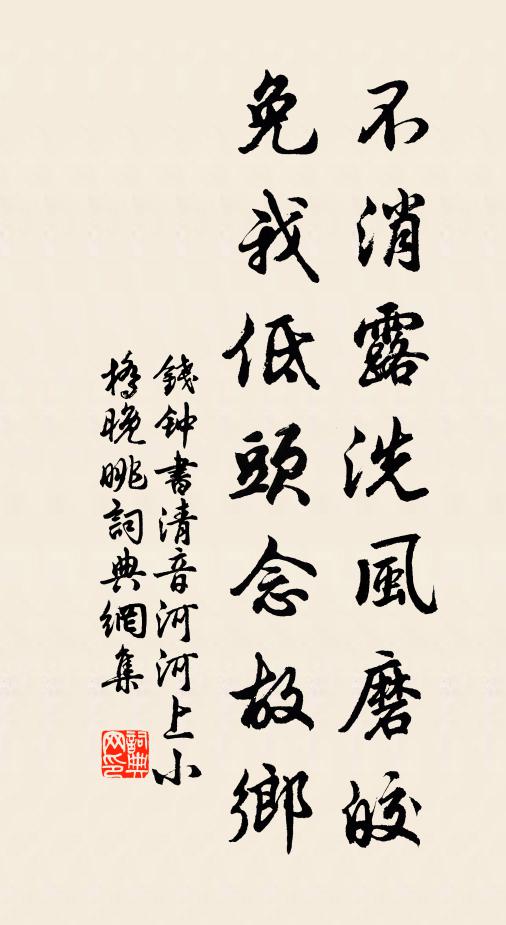 不消露洗風磨皎
免我低頭念故鄉
錢鍾書清音河河上小
橋晚眺詞典網集
詞典
网印